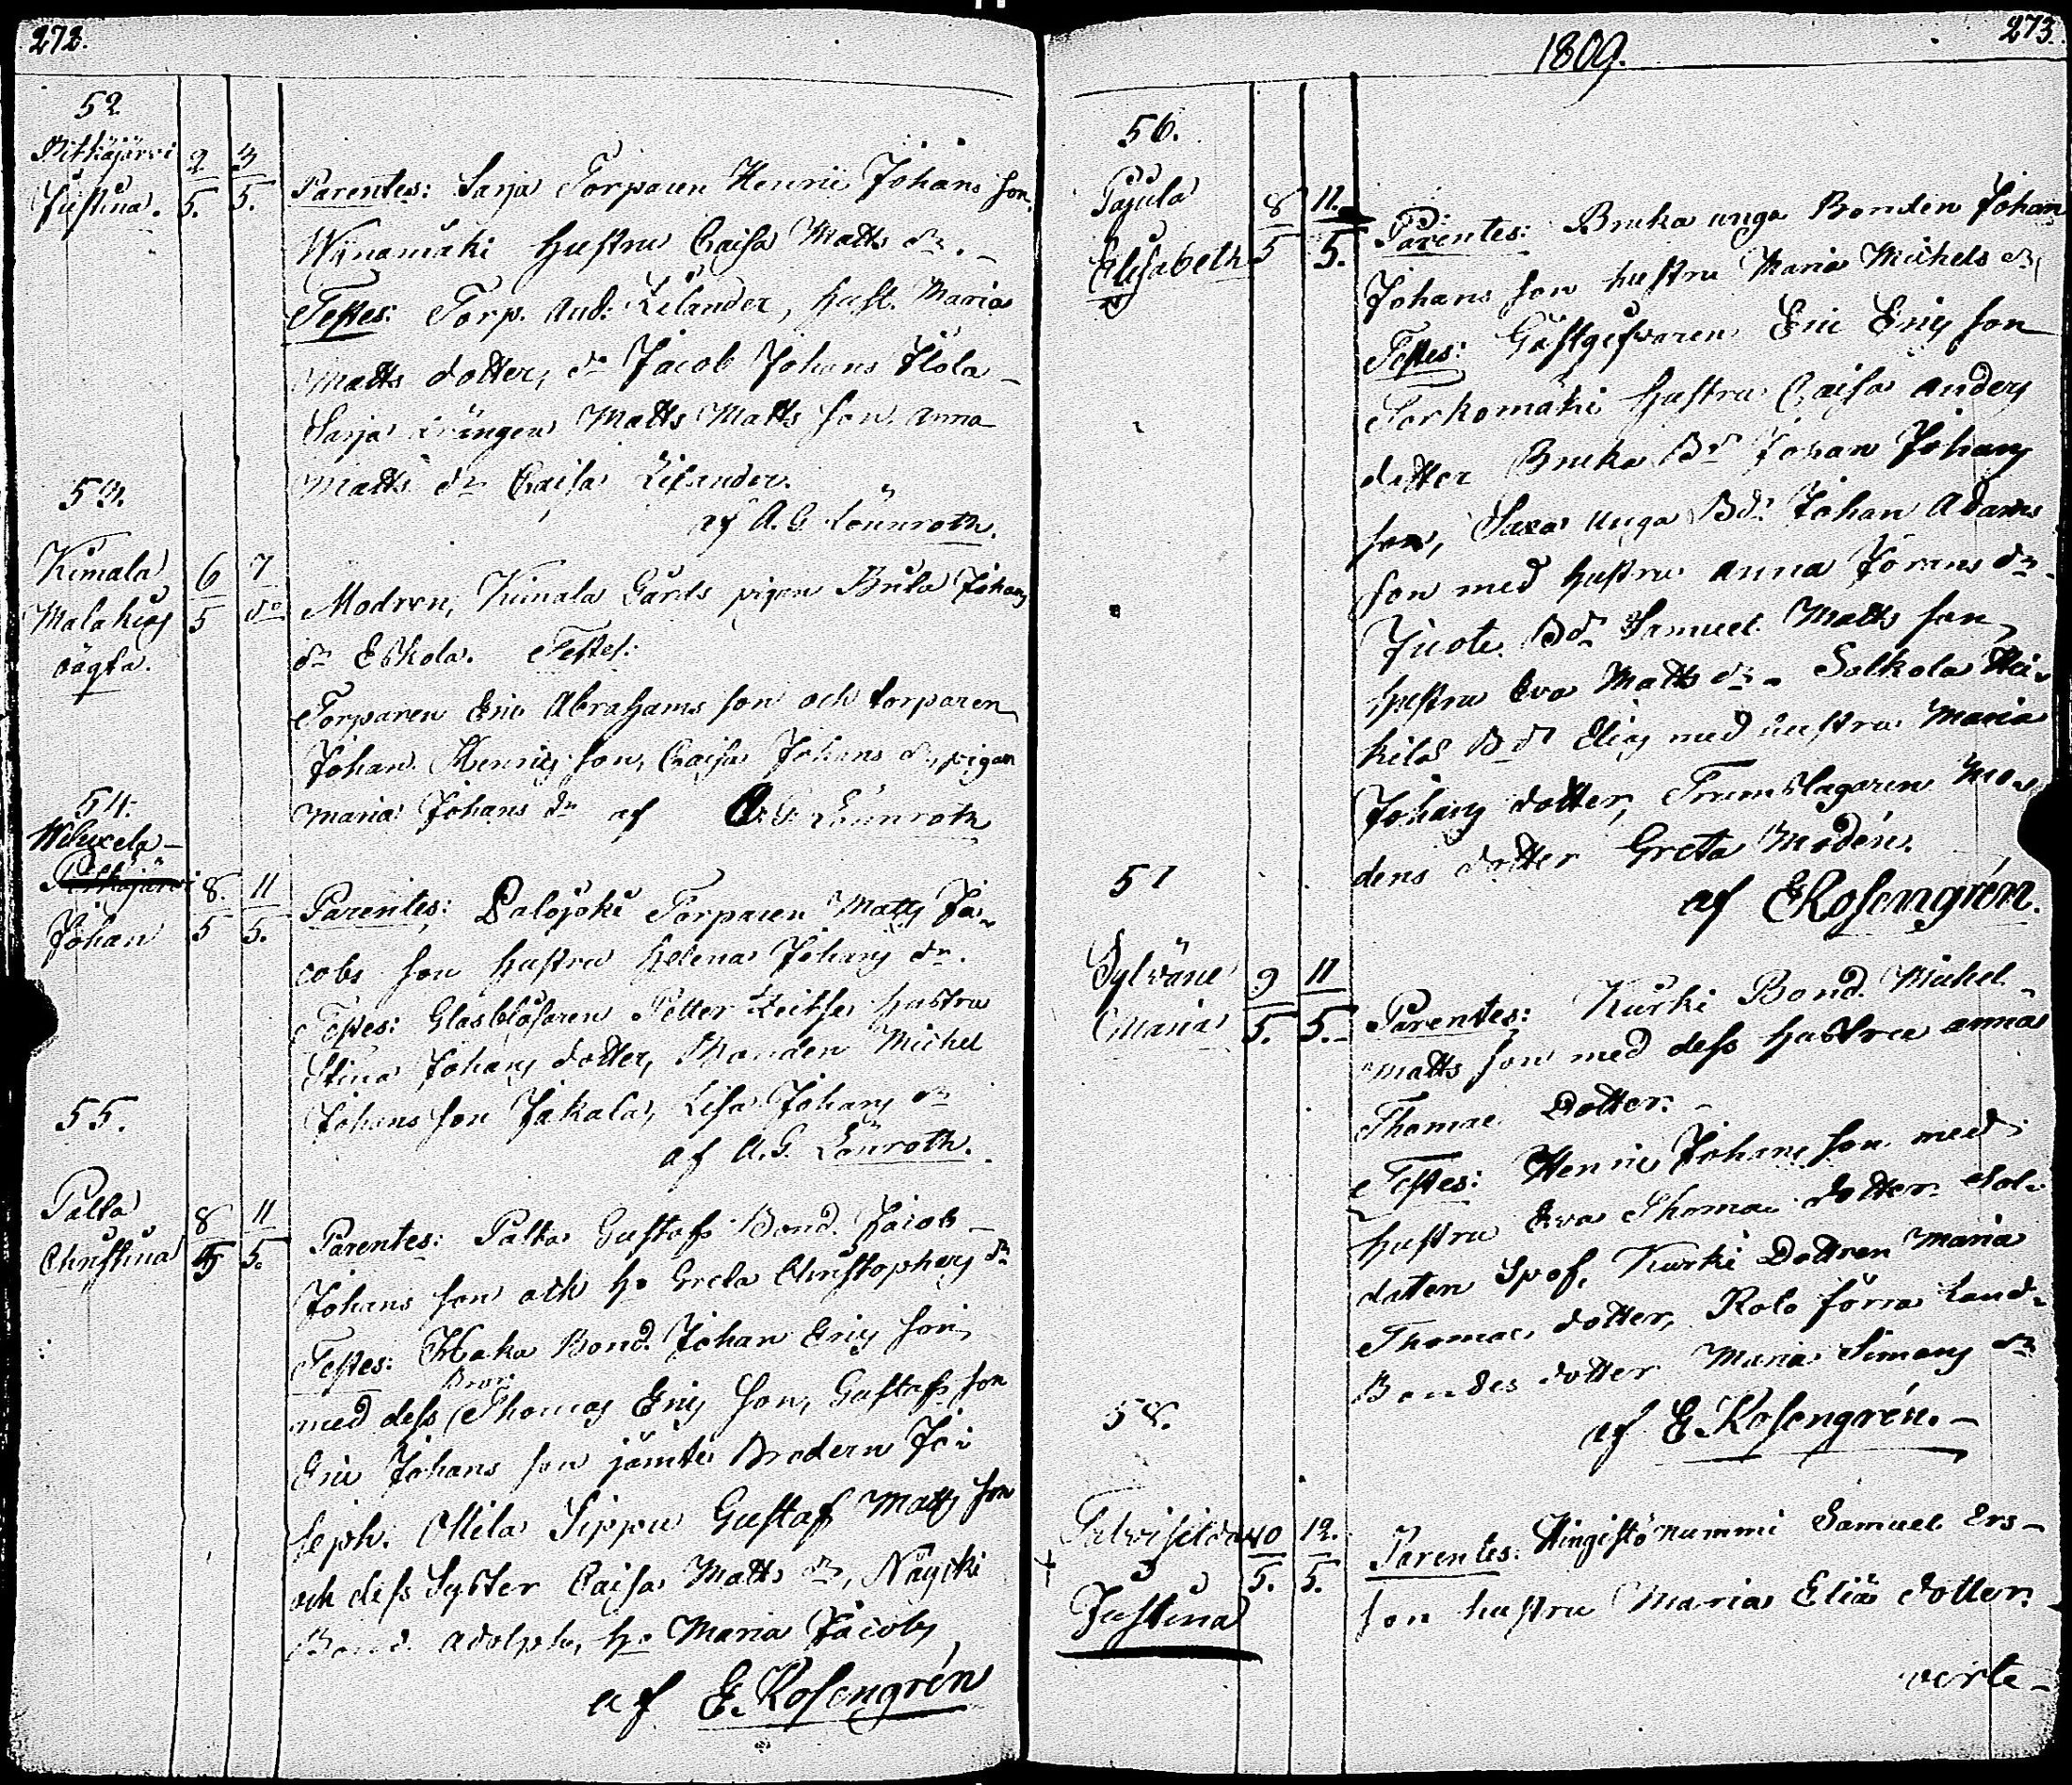 272.
52.
Pitkäjärvi 2 3
Justina. 5. 5.
Parentes: Sarja Torparen Henric Johans son
Wijnamäki hustru Caisa Matts dr. -
Testes: Torp. And: Lilander, hust. Maria
Matts dotter, dr Jacob Johans Ilola -
Sarja drängen Matts Matts son, Anna
Matts dr Caisa Lilander.
af A. G. Lönnroth.
53.
Kimala 6 7
Malakias 5 do
oägta.
Modren, Kimala Gårds pigan Brita Johans
dr Eskola. Testes:
Torparen Eric Abrahams son och torparen
Johan Henrics son, Caisa Johans dr, pigan
Maria Johans dr af A. G. Lönnroth
54.
Pitkäjärvi 8. 11
Johan 5 5.
Parentes: Palojoki Torparen Matts Ja-
cobs son hustru Helena Johans dr.
Testes: Glasblåsaren Petter hustru
Stina Johans dotter, Bonden Michel
Johans son Jakala, Lisa Johans dr
af A. G. Lönroth.
55.
Palta 8 11
Christina 5 5.
Parentes: Palta Gustafs Bond. Jacob -
Johans son och ho Greta Christophers dr
Testes: Haka Bond. Johan Erics son
Bror
med dess Thomas Erics son, Gustafs son
Eric Johans son jämte Brodern Jo-
seph. Ollila Sippu Gustaf Matts son
och dess Syster Caisa Matts dr,
Bond. Adolph, ho Maria Jacobs
af E. Rosengrén
1809.
273.
56.
Pajula 8 11.
Elisabeth 5 5.
Parentes: Bruka unga Bonden Johan
Johans son hustru Maria Michels dr
Testes: Gästgifvaren Eric Erics son
Torkomäki hustru Caisa Anders
dotter Bruka Bdr Johan Johans
son, Saxa unga Bdr Johan Adams
son med hustru Anna Jörans dr
Bdr Samuel Matts son,
hustru Eva Matts dr - Salkola Hei-
kilä Bdr Elias med hustru Maria
Johans dotter, Trumslagaren Mo-
dens dotter Greta Modén.
af E Rosengrén.
57
Sylväne 9 11
Maria 5. 5. -
Parentes: Kurki Bond. Michel -
Matts son med dess hustru Anna
Thomae Dotter. -
Testes: Henric Johans son med
hustru Eva Thomae dotter Sol-
daten Spof, Kurki Dottren Maria
Thomae dotter, Rolo förra Land-
Bondes dotter Maria Simons dr
af E. Rosengrén. -
58.
10 12.
+ 5. 5.
Justina
Parentes: Hingistönummi Samuel Ers-
son hustru Maria Eliä dotter.
verte -